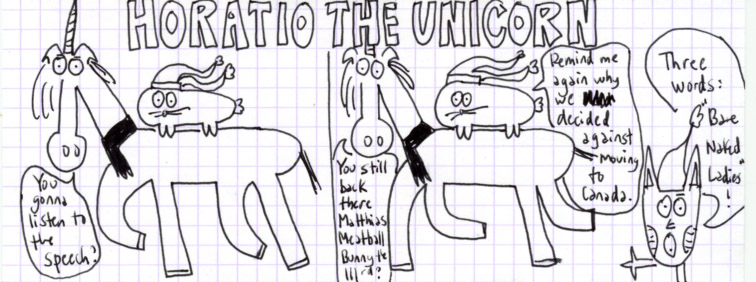 HORATIO THE UNICORN
You
gonna
listen to
the
speech?
You still
back
there
Matthias
Meatball
Bunny the
IIIrd?
Remind me
again why
we
decided
against
moving
to
Canada.
Three
words:
"Bare
Naked
Ladies"
!